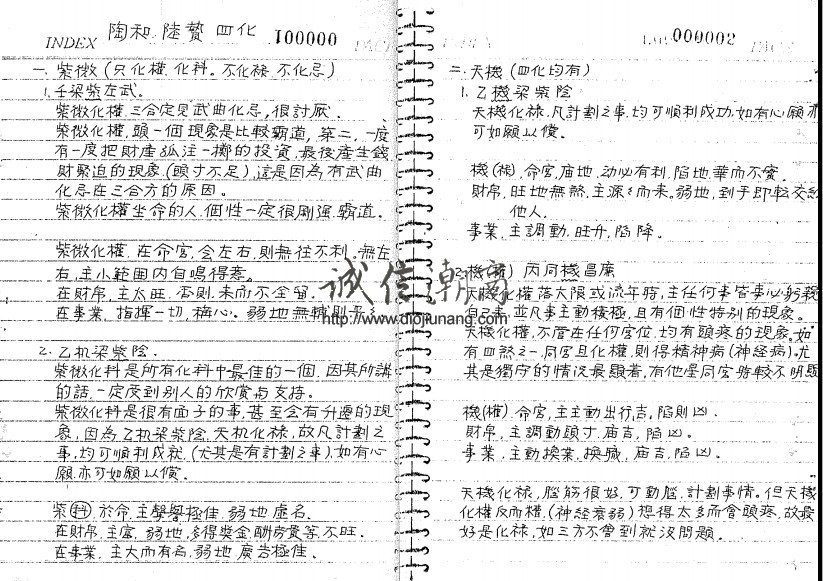 INDEX 陶和 陸贊 四化 100000
一. 紫微(只化權.化科。不化祿.不化忌)
1.壬梁紫左武。
紫微化權.三合定見武曲化忌,很討厭。
紫微化權.頭一個現象是比較霸道,第二,一度
有一度把財產孤注一擲的投資.最後產生錢
財緊迫的現象(頭寸不足),這是因為有武曲
化忌在三合方的原因。
紫微化權坐命的人.個性一定很剛強.霸道。
紫微化權.在命宮.會左右.則無往不利.無左
右.主小範圍內自鳴得意。
在財帛.主太旺.否則.来而不全留.
在事業.指揮一切.核心。弱地.無
2.乙机梁紫陰.
紫微化科是所有化科中最佳的一個.因其所講
的話.一定受到別人的欣賞与支持。
紫微化科是很有面子的事.甚至会有升遷的現
象,因為乙机梁紫陰.天机化祿.故凡計劃之
事.均可順利成就.(尤其是有計劃之事).如有心
願.亦可如願以償.
紫(科).於命.主學譽極佳.弱地.虛名.
在財帛.主富.弱地.多得獎金.酬勞貴等.不旺.
在事業.主大而有名.弱地.廣告極佳.
000002 PAGE
二.天機(四化均有)
1.乙機梁紫陰
天機化祿.凡計劃之事.均可順利成功.如有心願亦
可如願以償。
機(祿).命宮.庙地.动必有利.陷地.華而不實.
財帛.旺地無煞.主源々而来。弱地.到手即轉交給
他人.
事業.主調動.旺升.陷降.
2.機(權) 丙同機昌廉
天機化權落大限或流年時.主任何事皆事必躬親
自己来.並凡事主動積極,且有個性特別的現象。
天機化權.不管在任何宮位.均有頭疼的現象.如
有四煞之一同宮且化權.則得精神病(神經病)。尤
其是獨守的情況最顯著.有他星同宮時較不明顯
機(權).命宮.主主動出行吉.陷則凶.
財帛.主調動頭寸.庙吉,陷凶.
事業.主動換業.換職.庙吉.陷凶.
天機化祿.腦筋很好.可動腦.計劃事情。但天機
化權反而權.(神經衰弱)想得太多而會頭疼.故最
好是化祿.如三方不會到就沒問題.
誠信朝高
www.diojiunang.com